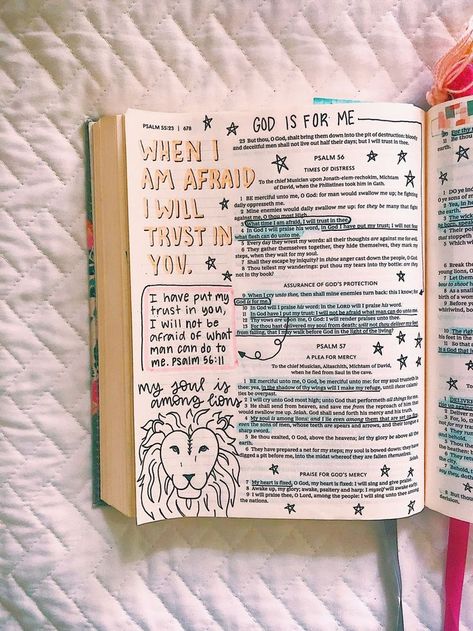 PSALM 55:23 | 678
GOD IS FOR ME
WHEN I
AM AFRAID
I WILL
TRUST IN
YOU.
I have put my
trust in you,
I will not be
afraid of what
man can do to
me. Psalm 56:11
my soul is
among lions
23 But thou, O God, shalt bring them down into the pit of destruction: bloody
and deceitful men shall not live out half their days; but I will trust in thee.
PSALM 56
TIMES OF DISTRESS
To the chief Musician upon Jonath-elem-rechokim, Michtam
of David, when the Philistines took him in Gath.
1 BE merciful unto me, O God: for man would swallow me up; he fighting
daily oppresseth me.
2 Mine enemies would daily swallow me up: for they be many that fight
against me, O thou most High.
3 What time I am afraid, I will trust in thee.
4 In God I will praise his word, in God I have put my trust; I will not fear
what flesh can do unto me.
5 Every day they wrest my words: all their thoughts are against me for evil.
6 They gather themselves together, they hide themselves, they mark my
steps, when they wait for my soul.
7 Shall they escape by iniquity? in thine anger cast down the people, O God.
8 Thou tellest my wanderings: put thou my tears into thy bottle: are they
not in thy book?
ASSURANCE OF GOD'S PROTECTION
9 When I cry unto thee, then shall mine enemies turn back: this I know; for
God is for me.
10 In God will I praise his word: in the LORD will I praise his word.
11 In God have I put my trust: I will not be afraid what man can do unto me.
12 Thy vows are upon me, O God: I will render praises unto thee.
13 For thou hast delivered my soul from death: wilt not thou deliver my feet
from falling, that I may walk before God in the light of the living?
PSALM 57
A PLEA FOR MERCY
To the chief Musician, Altaschith, Michtam of David,
when he fled from Saul in the cave.
1 BE merciful unto me, O God, be merciful unto me: for my soul trusteth in
thee: yea, in the shadow of thy wings will I make my refuge, until these calami-
ties be overpast.
2 I will cry unto God most high; unto God that performeth all things for me.
3 He shall send from heaven, and save me from the reproach of him that
would swallow me up. Selah. God shall send forth his mercy and his truth.
4 My soul is among lions: and I lie even among them that are set on fire,
even the sons of men, whose teeth are spears and arrows, and their tongue a
sharp sword.
5 Be thou exalted, O God, above the heavens; let thy glory be above all the
earth.
6 They have prepared a net for my steps; my soul is bowed down: they have
digged a pit before me, into the midst whereof they are fallen themselves. Selah.
PRAISE FOR GOD'S MERCY
7 My heart is fixed, O God, my heart is fixed: I will sing and give praise.
8 Awake up, my glory; awake, psaltery and harp: I myself will awake early.
9 I will praise thee, O Lord, among the people: I will sing unto thee among
the nations.